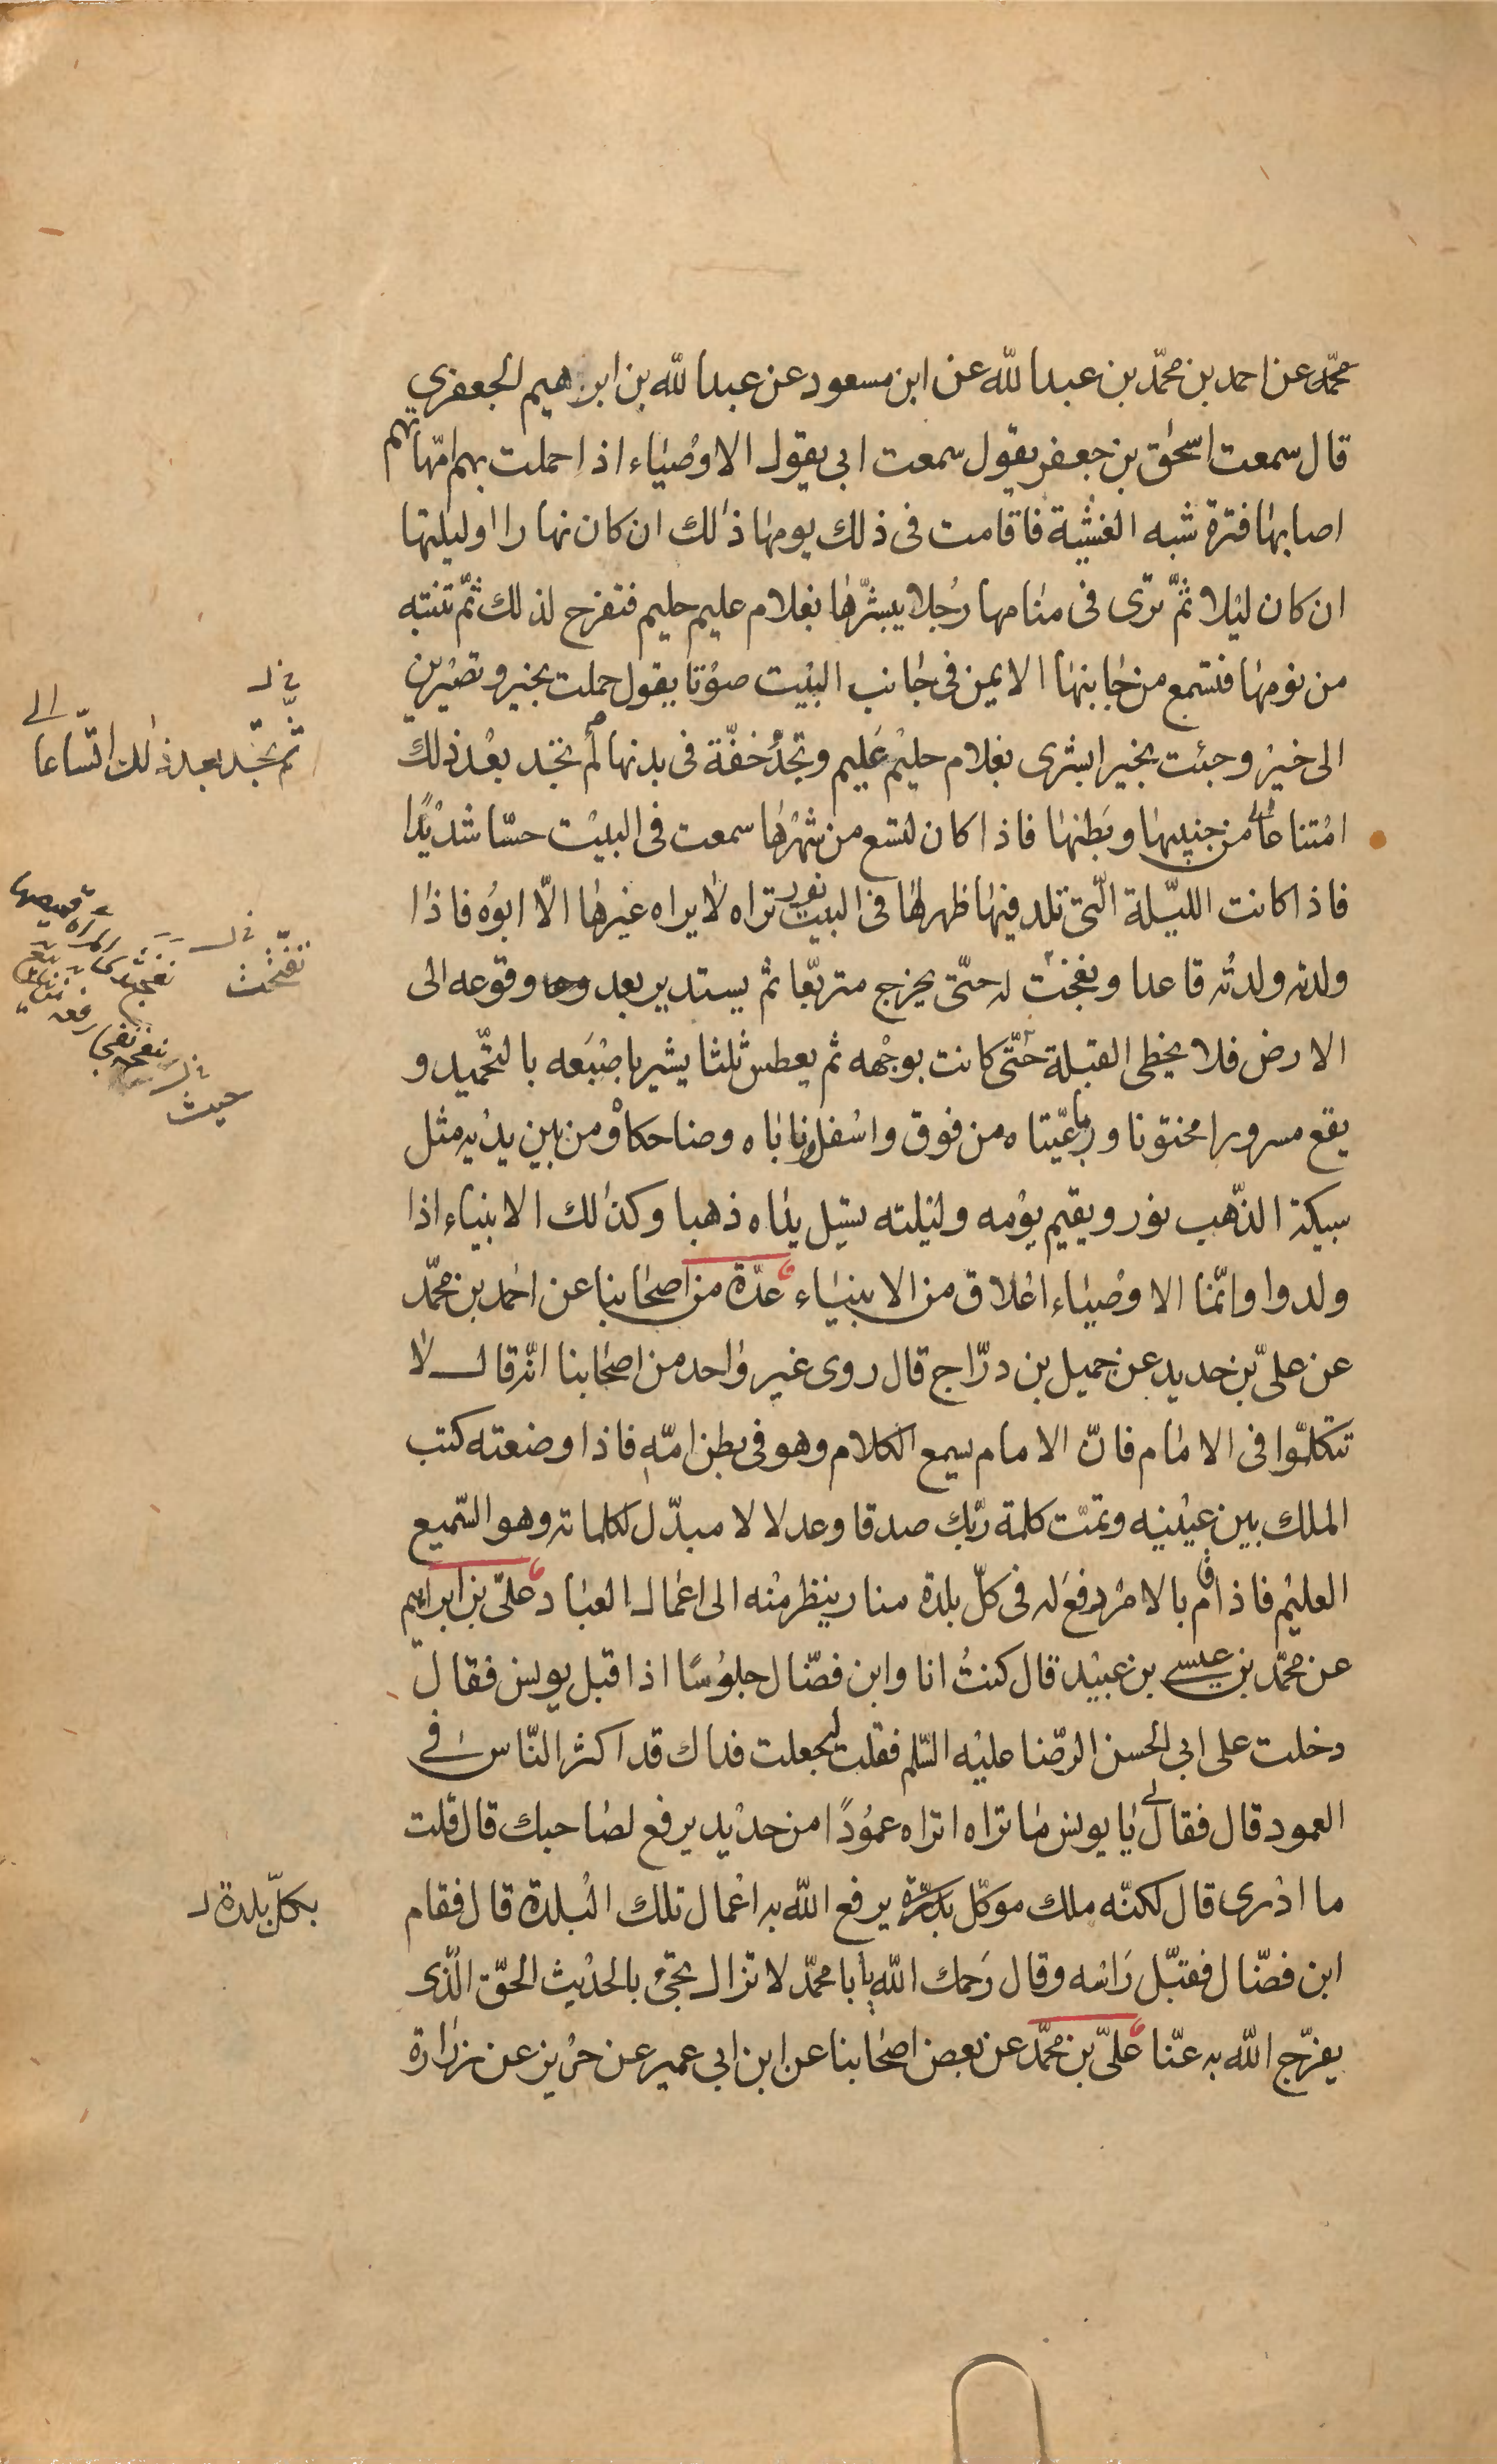 محمّد عن احمد بن محمّد بن عبد الله عن ابن مسعود عن عبد الله بن ابرهيم الجعفري
قال سمعت اسحٰق بن جعفر يقول سمعت ابى يقول الاوصياء اذا حملت بهم امّهاتهم
اصابها فترة شبه الغشية فاقامت فى ذلك يومها ذٰلك ان كان نهارا او ليلتها
ان كان ليلا ثمّ ترى فى منامها رجلا يبشّرها بغلام عليم حليم فتفرح لذلك ثمّ تنتبه
من نومها فتسمع من جانبها الايمن فى جانب البيت صوتا يقول حملت بخير وتصيرين
الى خير وجئت بخير ابشرى بغلام حليم عليم وتجد خفّة فى بدنها ثم لم تجد بعد ذلك
امتناعا من جنبيها وبطنها فاذا كان لتسع من شهرها سمعت فى البيت حسّا شديدًا
فاذا كانت الليلة الّتى تلد فيها ظهر لها فى البيت نور تراه لا يراه غيرها الّا ابوه فاذا
ولدته ولدته قاعدا وتفجّت له حتّى يخرج متربّعا ثم يستدير بعد وقوعه الى
الارض فلا يخطى القبلة حتّى كانت بوجهه ثم يعطس ثلثا يشير باصبعه بالتحميد و
يقع مسرورا مختونا ورباعيّتاه من فوق واسفل وناباه وضاحكاه ومن بين يديه مثل
سبيكة الذّهب نور ويقيم يومه وليلته تسيل يداه ذهبا وكذٰلك الانبياء اذا
ولدوا وانّما الاوصياء اعلاق من الانبياء عدّة من اصحابنا عن احمد بن محمّد
عن علىّ بن حديد عن جميل بن درّاج قال روى غير واحد من اصحابنا انّه قال لا
تتكلّموا فى الامام فانّ الامام يسمع الكلام وهو فى بطن امّه فاذا وضعته كتب
الملك بين عينيه وتمّت كلمة ربّك صدقا وعدلا لا مبدّل لكلماته وهو السّميع
العليم فاذا قام بالامر رفع له فى كلّ بلدة منار ينظر منه الى اعمال العباد علىّ بن ابراهيم
عن محمّد بن عيسى بن عبيد قال كنتُ انا وابن فضّال جلوسًا اذ اقبل يونس فقال
دخلت على ابى الحسن الرضا عليه السّلم فقلت له جعلت فداك قد اكثر النّاس فى
العمود قال فقال لى يا يونس ما تراه اتراه عمودًا من حديد يرفع لصاحبك قال قلت
ما ادرى قال لكنّه ملك موكّل يرفع الله به اعمال تلك البلدة قال فقام
ابن فضّال فقبّل راسه وقال رحمك الله يا با محمّد لا تزال تجىء بالحديث الحقّ الّذى
يفرّج الله به عنّا علىّ بن محمّد عن بعض اصحابنا عن ابن ابى عمير عن حريز عن زرارة
ثم تجد بعد ذلك اتّساعا
تفتّحت
حيث
بكلّ بلدة